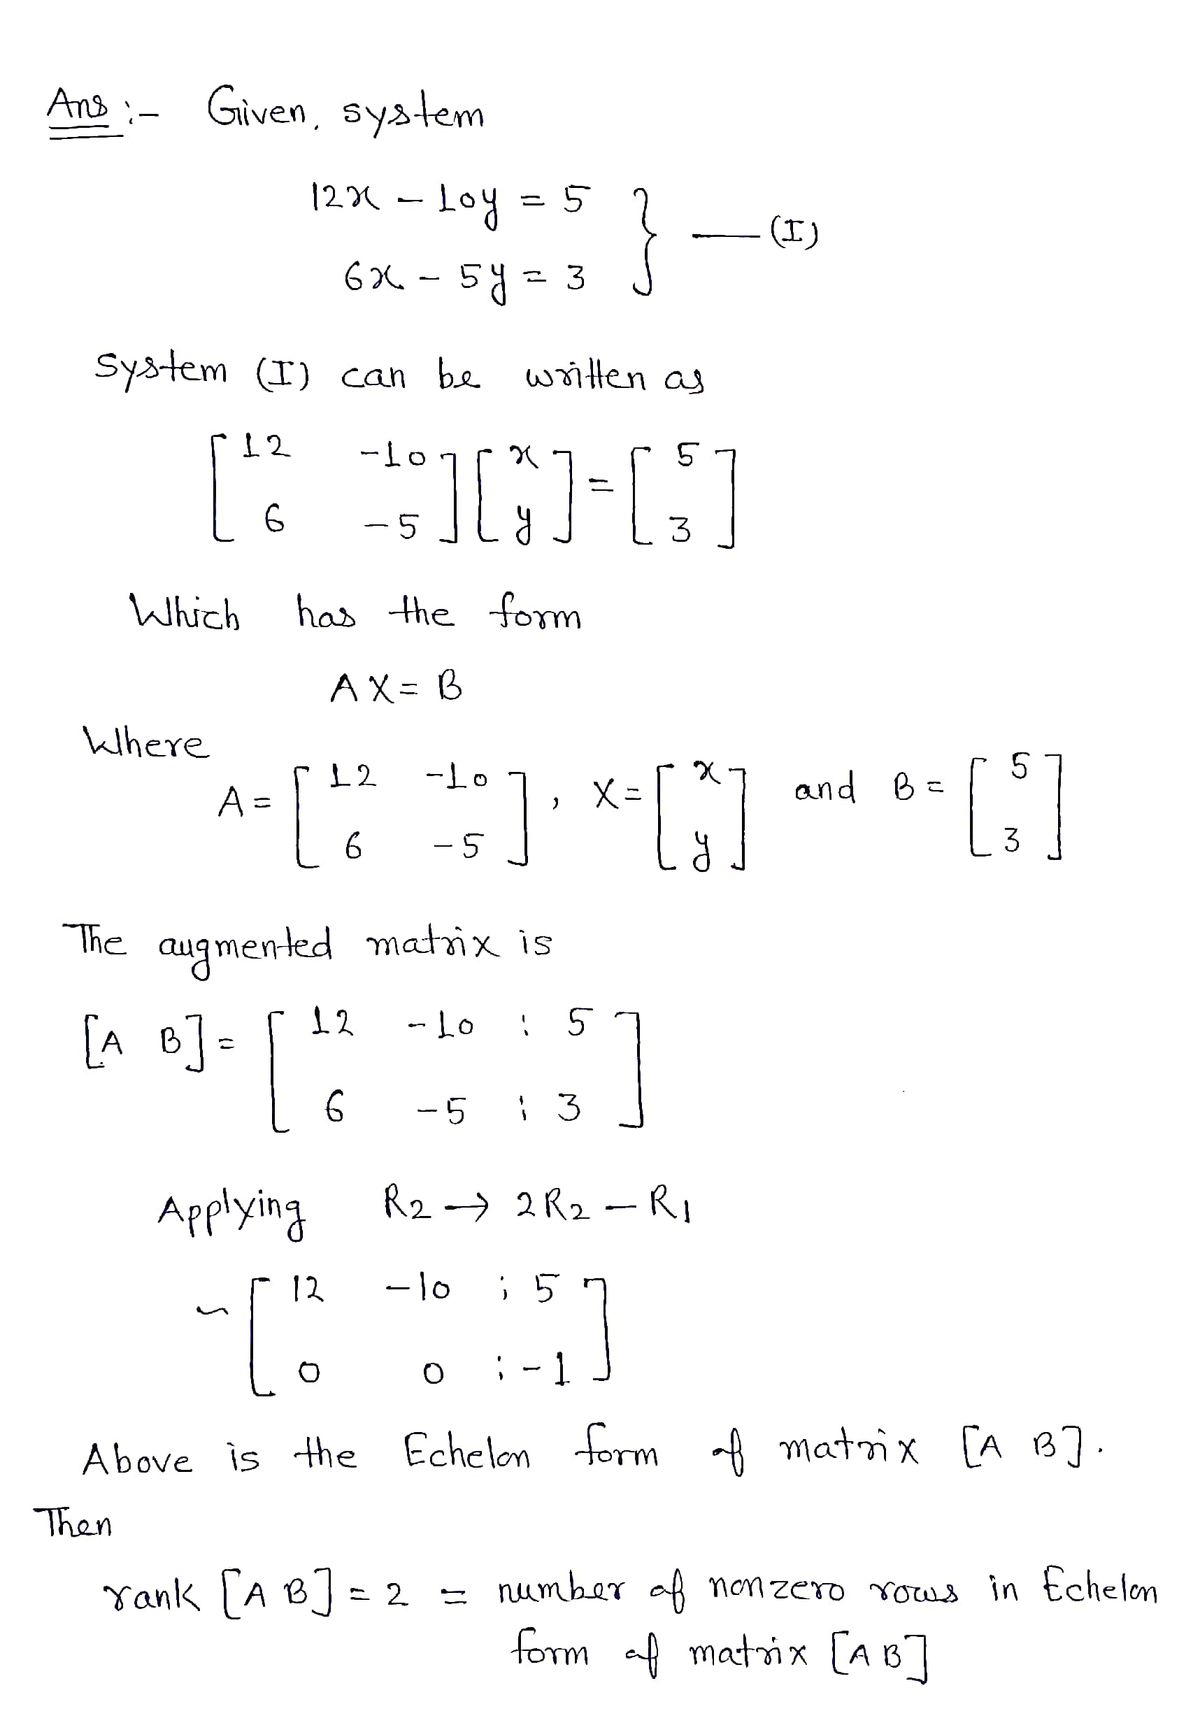 Ans :- Given, system
12x - 10y = 5
6x - 5y = 3 } — (I)
System (I) can be written as
[12 -10
6 -5] [x
y] = [5
3]
Which has the form
AX = B
Where
A = [12 -10
6 -5], X = [x
y] and B = [5
3]
The augmented matrix is
[A B] = [12 -10 : 5
6 -5 : 3]
Applying R2 → 2R2 - R1
~ [12 -10 ; 5
0 0 : -1]
Above is the Echelon form of matrix [A B].
Then
rank [A B] = 2 = number of nonzero rows in Echelon
form of matrix [A B]